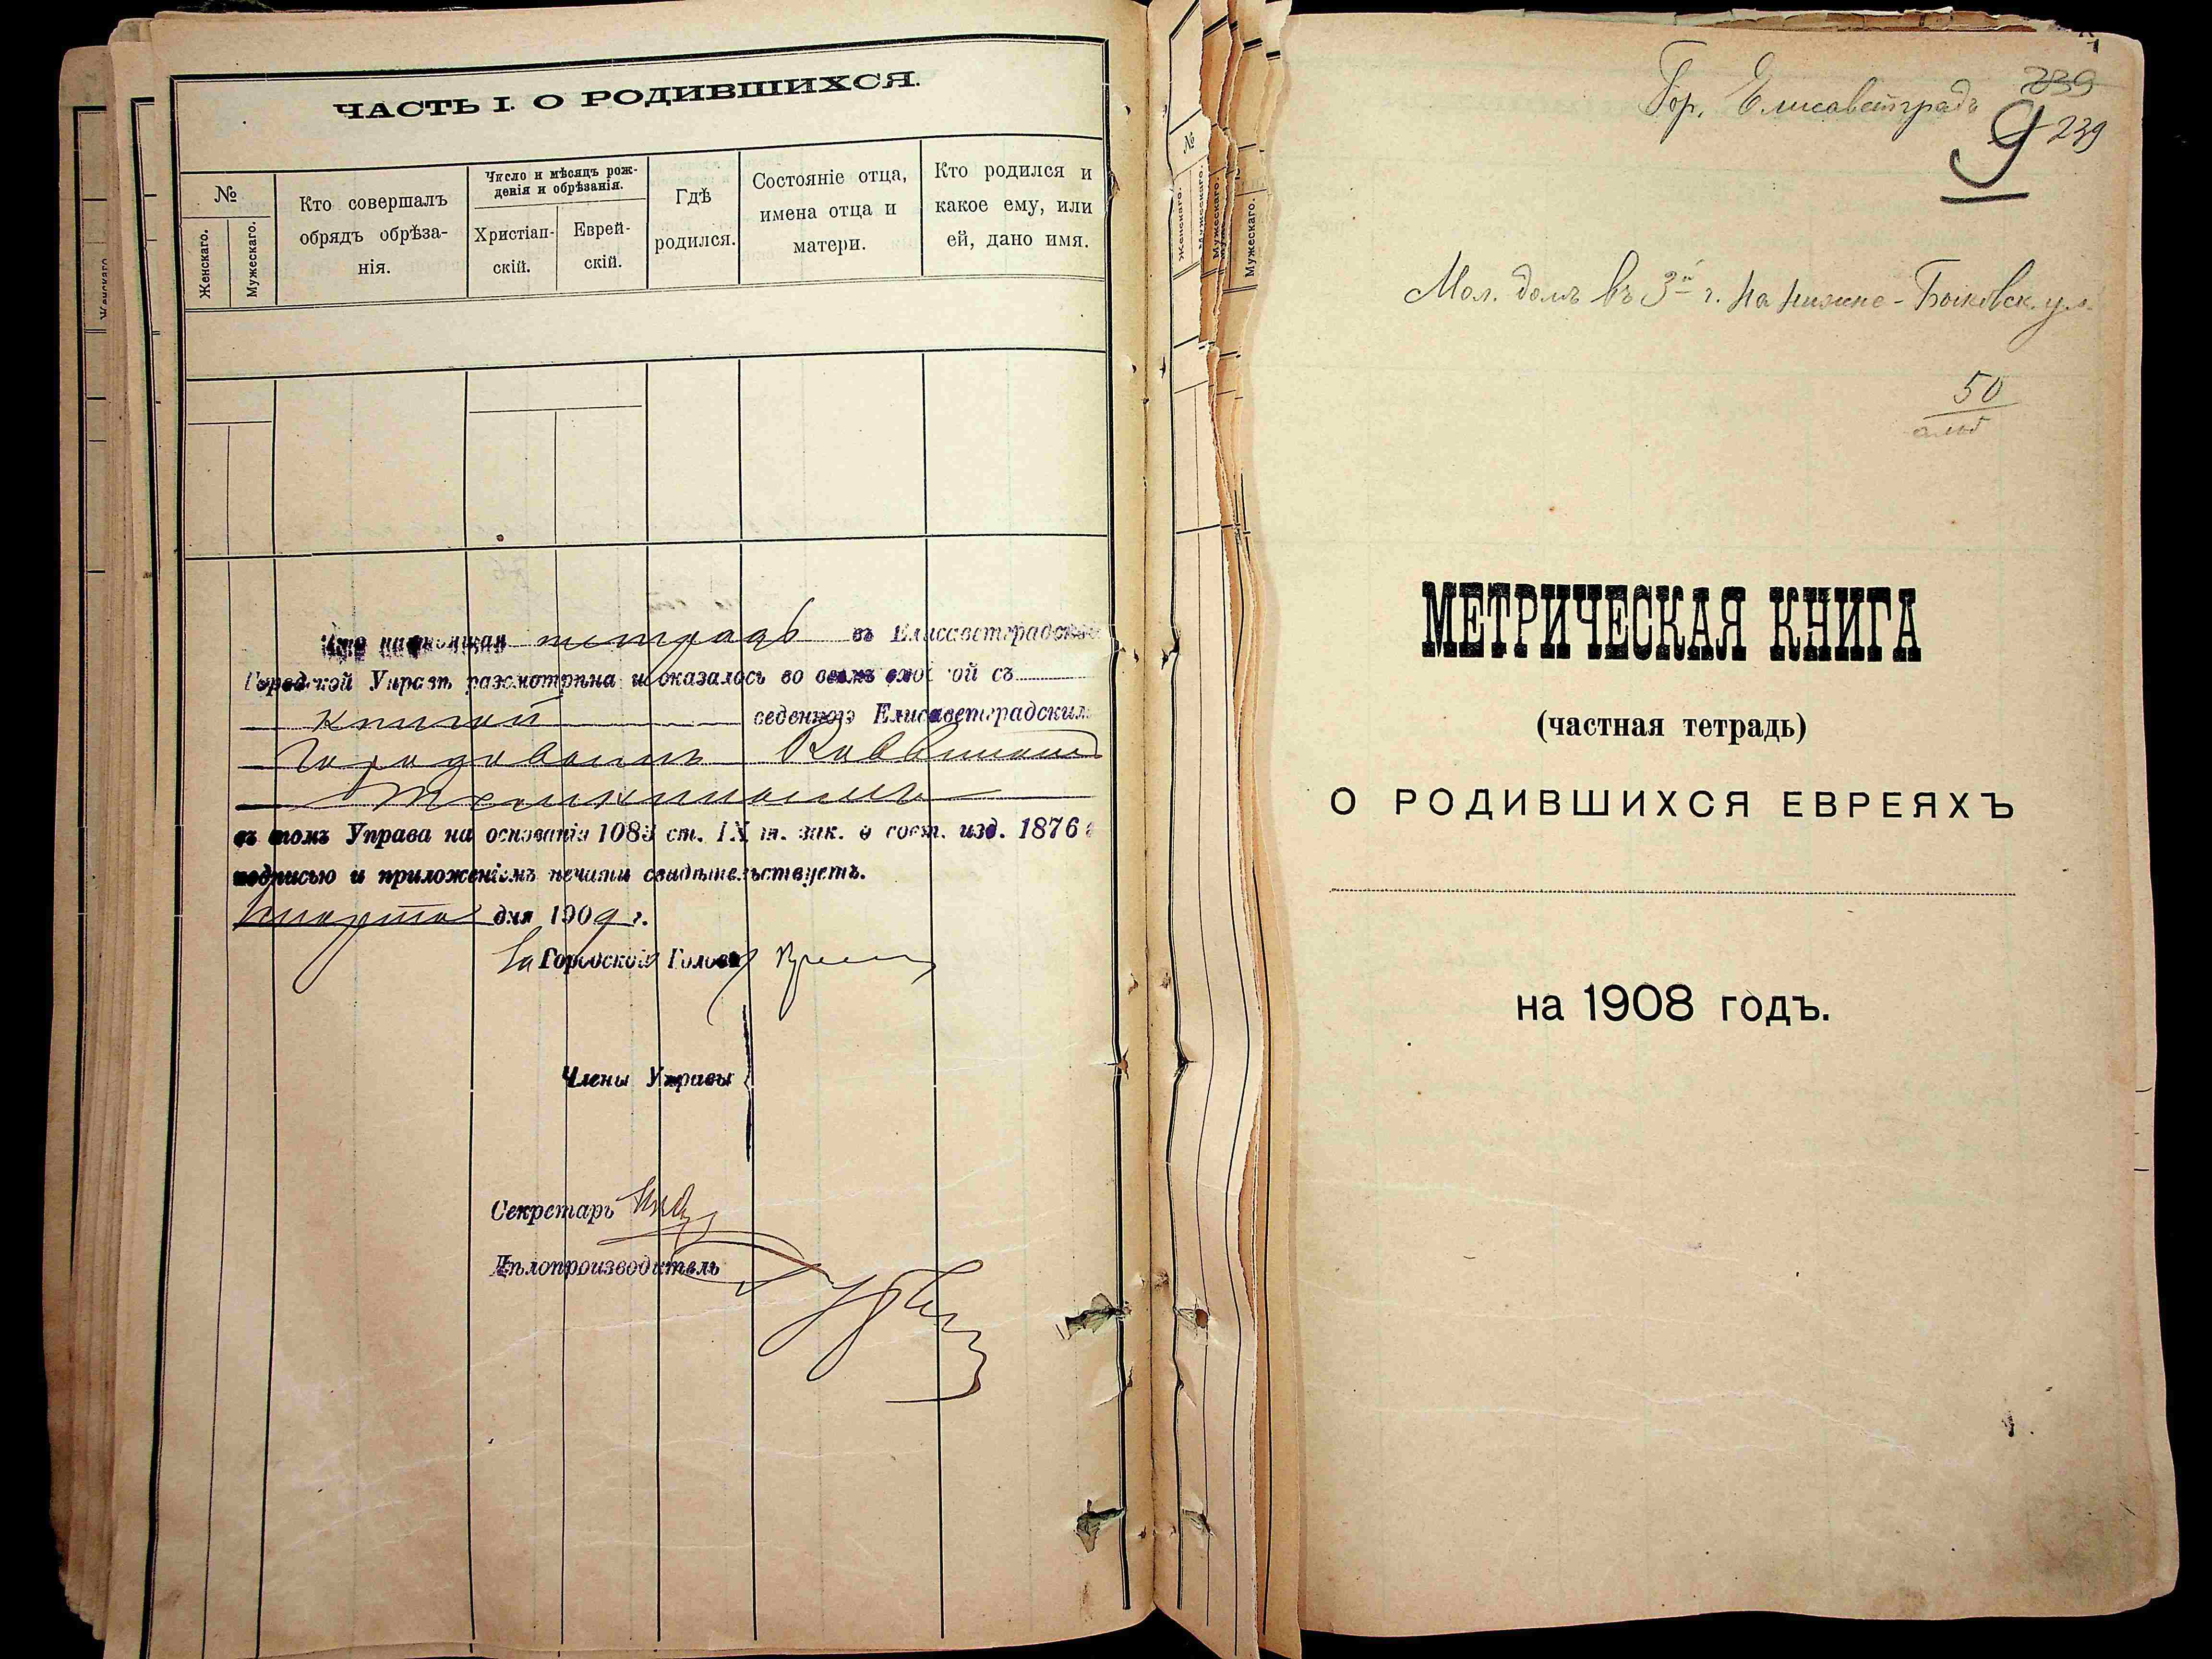 ЧАСТЬ I. О РОДИВШИХСЯ.
№
Женскаго.
Мужескаго.
Кто совершалъ
обрядъ обрѣза-
нія.
Число и мѣсяцъ рож-
денія и обрѣзанія.
Христіан-
скій.
Еврей-
скій.
Гдѣ
родился.
Состояніе отца,
имена отца и
матери.
Кто родился и
какое ему, или
ей, дано имя.
Что настоящая тетрадь въ Елисаветградской
Городской Управѣ разсмотрѣна и оказалась во всемъ сход ой съ
книгой веденною Елисаветградскимъ
Городовымъ Раввиномъ
въ томъ Управа на основаніи 1083 ст. IX т. зак. о сост. изд. 1876 г
подписью и приложеніемъ печати свидѣтельствуетъ.
марта дня 1909 г.
За Городской Голова
Члены Управы
Секретарь
Дѣлопроизводитель
№
Женскаго.
Мужескаго.
Мужескаго.
Мужескаго.
Гор. Елисаветградъ
239
9
239
Мол. домъ въ 3й ч. на нижне-Быковск. ул.
50
МЕТРИЧЕСКАЯ КНИГА
(частная тетрадь)
О РОДИВШИХСЯ ЕВРЕЯХЪ
на 1908 годъ.